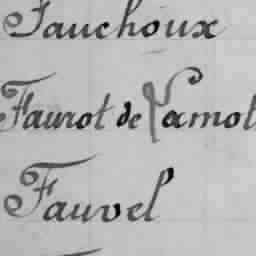 Fauchoux
Faurot de Lamot
Fauvel